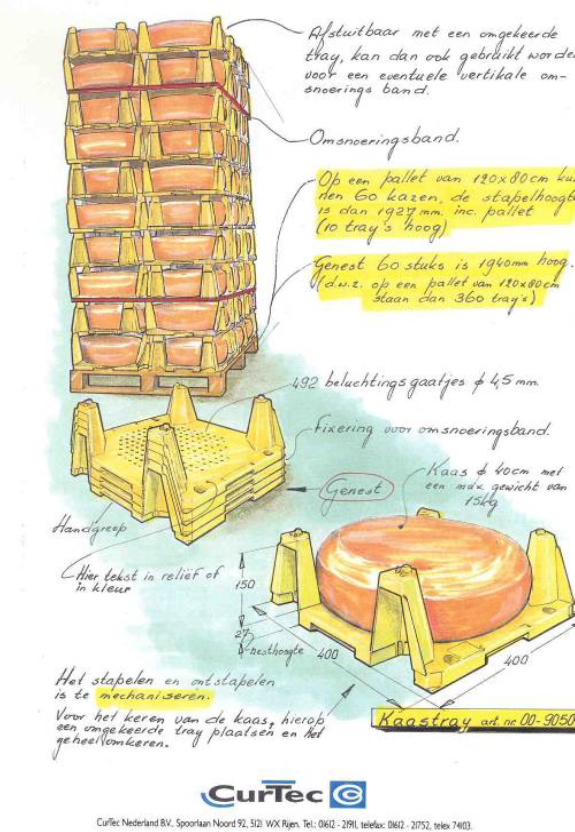 Afsluitbaar met een omgekeerde
tray, kan dan ook gebruikt worde
voor een eventuele vertikale om-
snoerings band.
Omsnoeringsband.
Op een pallet van 120x80cm ku
nen 60 kazen, de stapelhoogte
is dan 1927 mm. inc. pallet
(10 tray's hoog)
Genest 60 stuks is 1940mm hoog.
(d.w.z. op een pallet van 120x80cm
staan dan 360 tray's)
492 beluchtings gaatjes ϕ 4,5 mm.
Fixering voor omsnoeringsband.
Kaas ϕ 40cm met
een max gewicht van
15kg
Genest
Handgreep
Hier tekst in reliëf of
in kleur
150
27
nesthoogte
400
400
Het stapelen en ontstapelen
is te mechaniseren.
Voor het keren van de kaas, hierop
een omgekeerde tray plaatsen en het
geheel omkeren.
Kaastray art. nr. 00-9050
CurTec
CurTec Nederland B.V., Spoorlaan Noord 92, 5121 WX Rijen. Tel.: 01612 - 21911, telefax: 01612 - 21752, telex 74103.